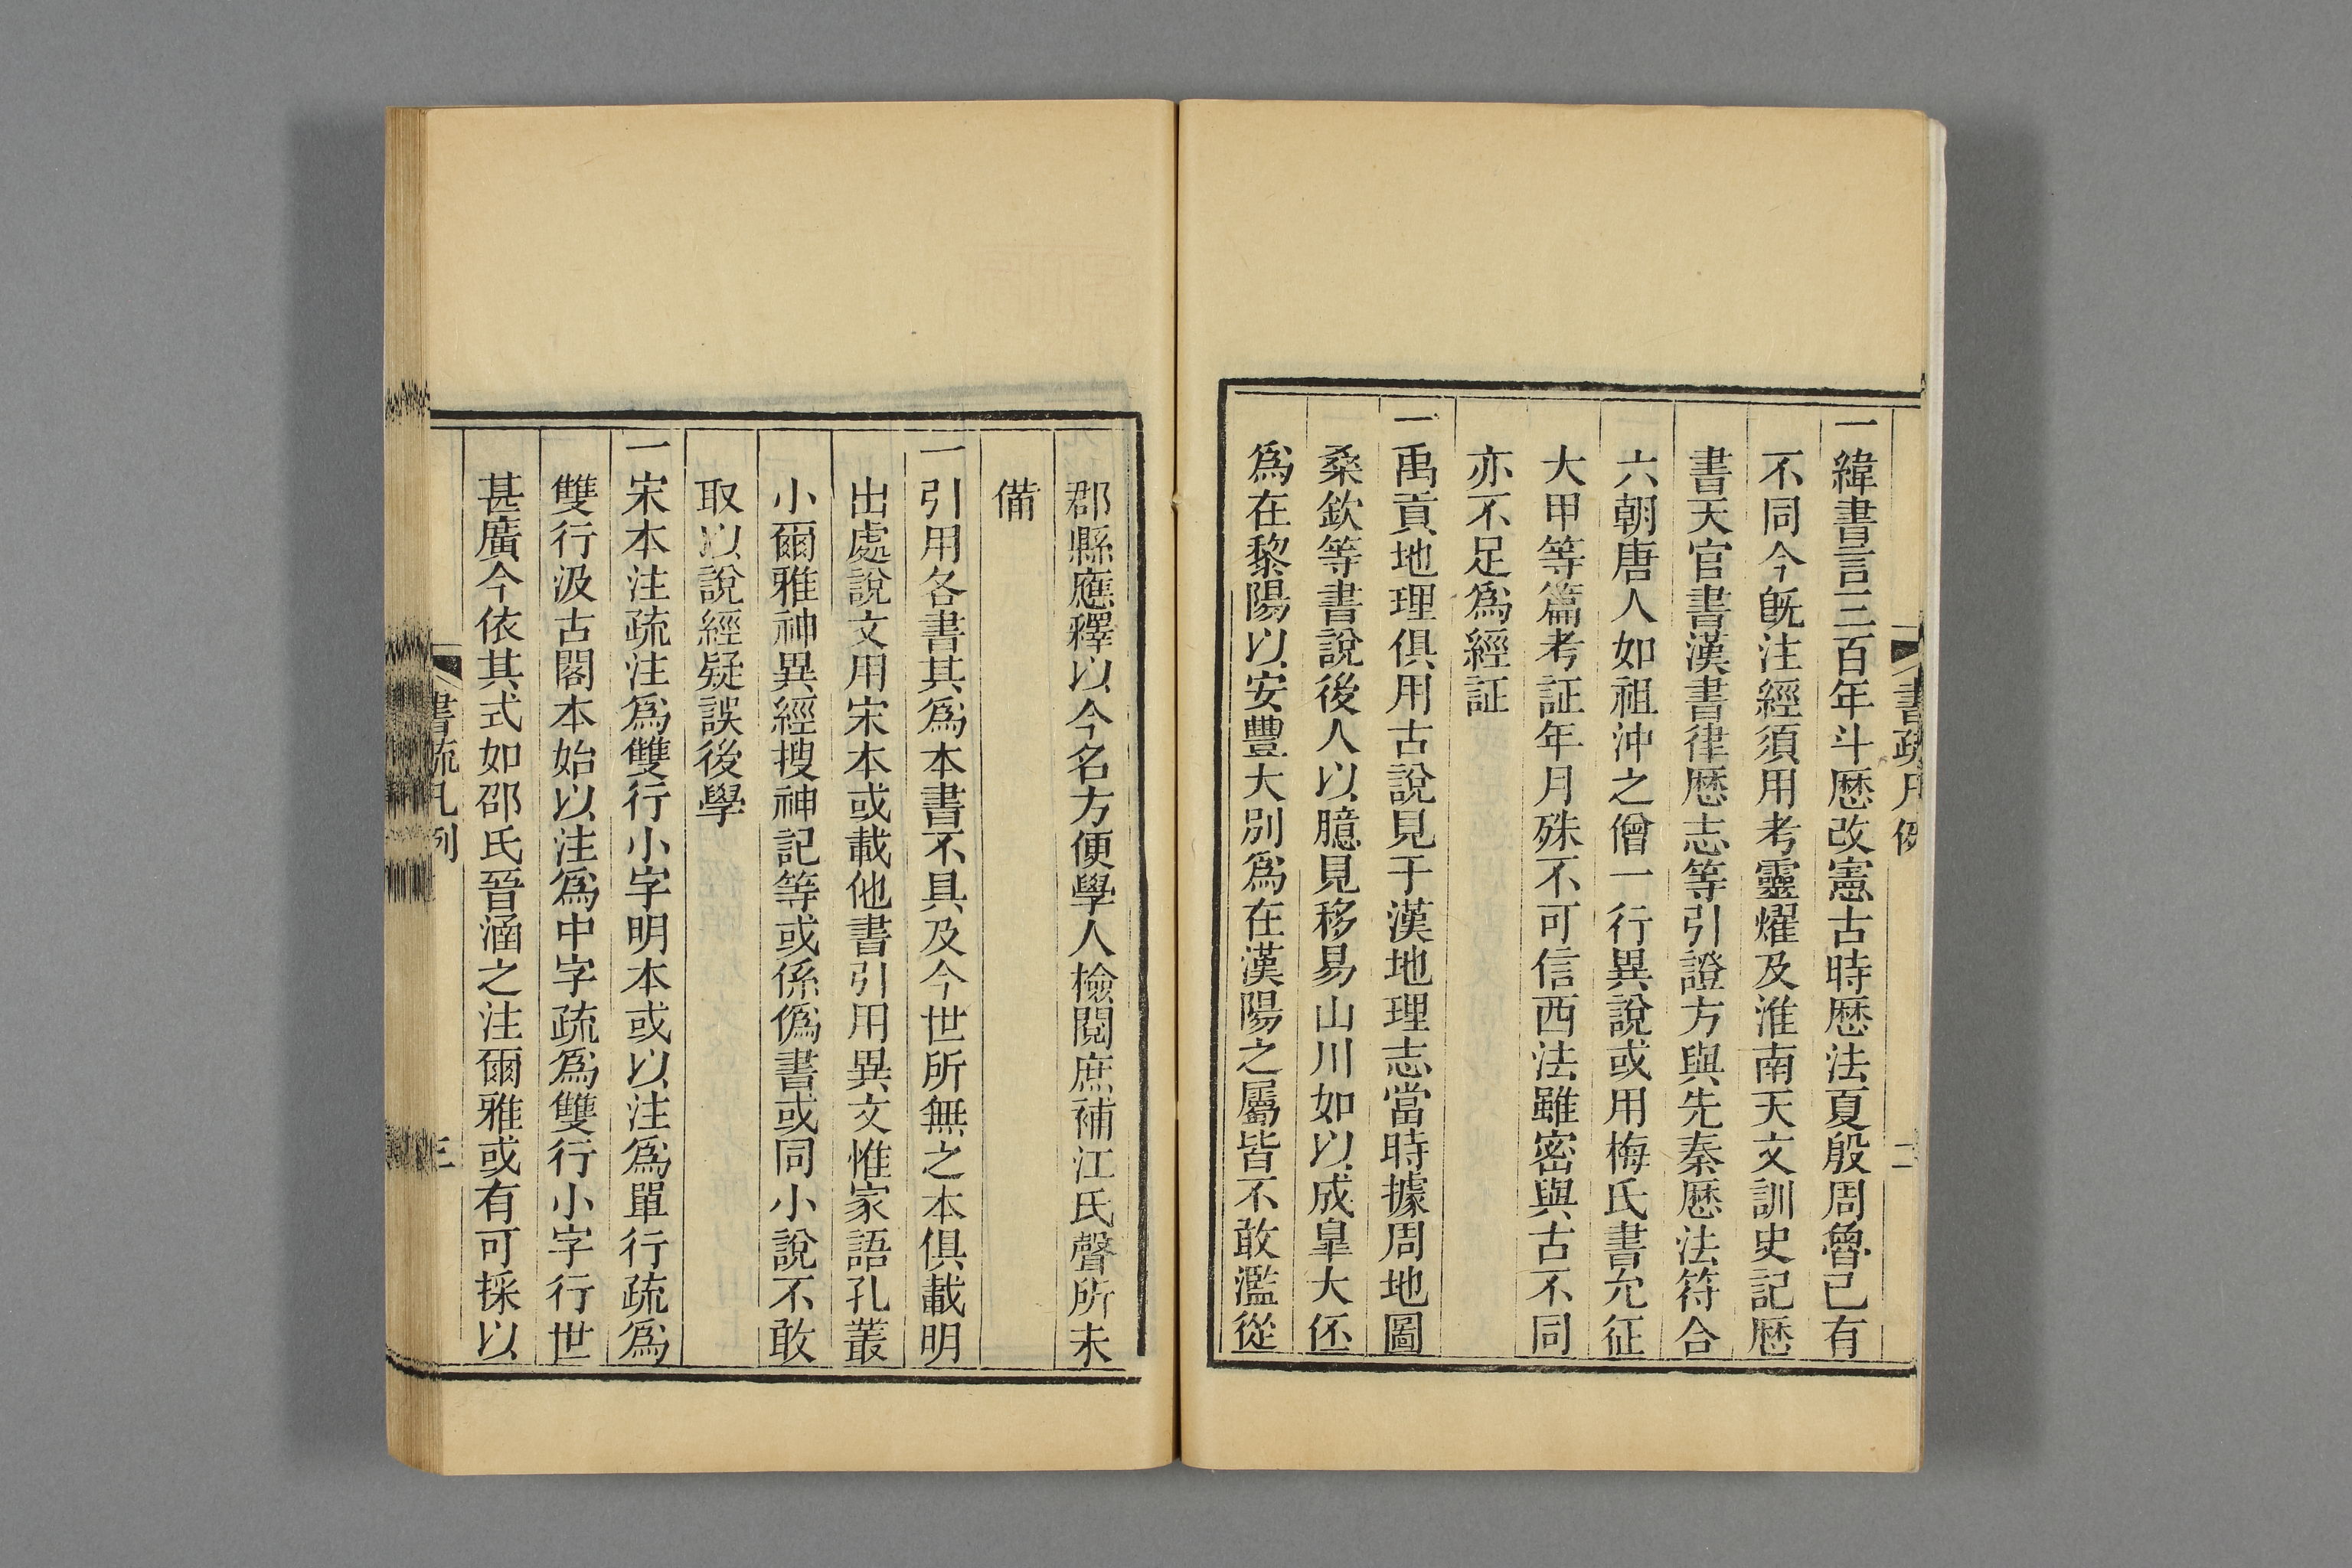 書疏凡例
二
一緯書言三百年斗厯改憲古時厯法夏殷周魯已有
不同今旣注經須用考靈燿及淮南天文訓史記厯
書天官書漢書律厯志等引證方與先秦厯法符合
六朝唐人如祖沖之僧一行異說或用梅氏書允征
大甲等篇考証年月殊不可信西法雖密與古不同
亦不足爲經証
一禹貢地理俱用古說見于漢地理志當時據周地圖
桑欽等書說後人以臆見移易山川如以成臯大伾
爲在黎陽以安豐大別爲在漢陽之屬皆不敢濫從
郡縣應釋以今名方便學人檢閱庶補江氏聲所未
備
一引用各書其爲本書不具及今世所無之本俱載明
出處說文用宋本或載他書引用異文惟家語孔叢
小爾雅神異經搜神記等或係僞書或同小說不敢
取以說經疑誤後學
一宋本注疏注爲雙行小字明本或以注爲單行疏爲
雙行汲古閣本始以注爲中字疏爲雙行小字行世
甚廣今依其式如邵氏晉涵之注爾雅或有可採以
書疏凡例
三